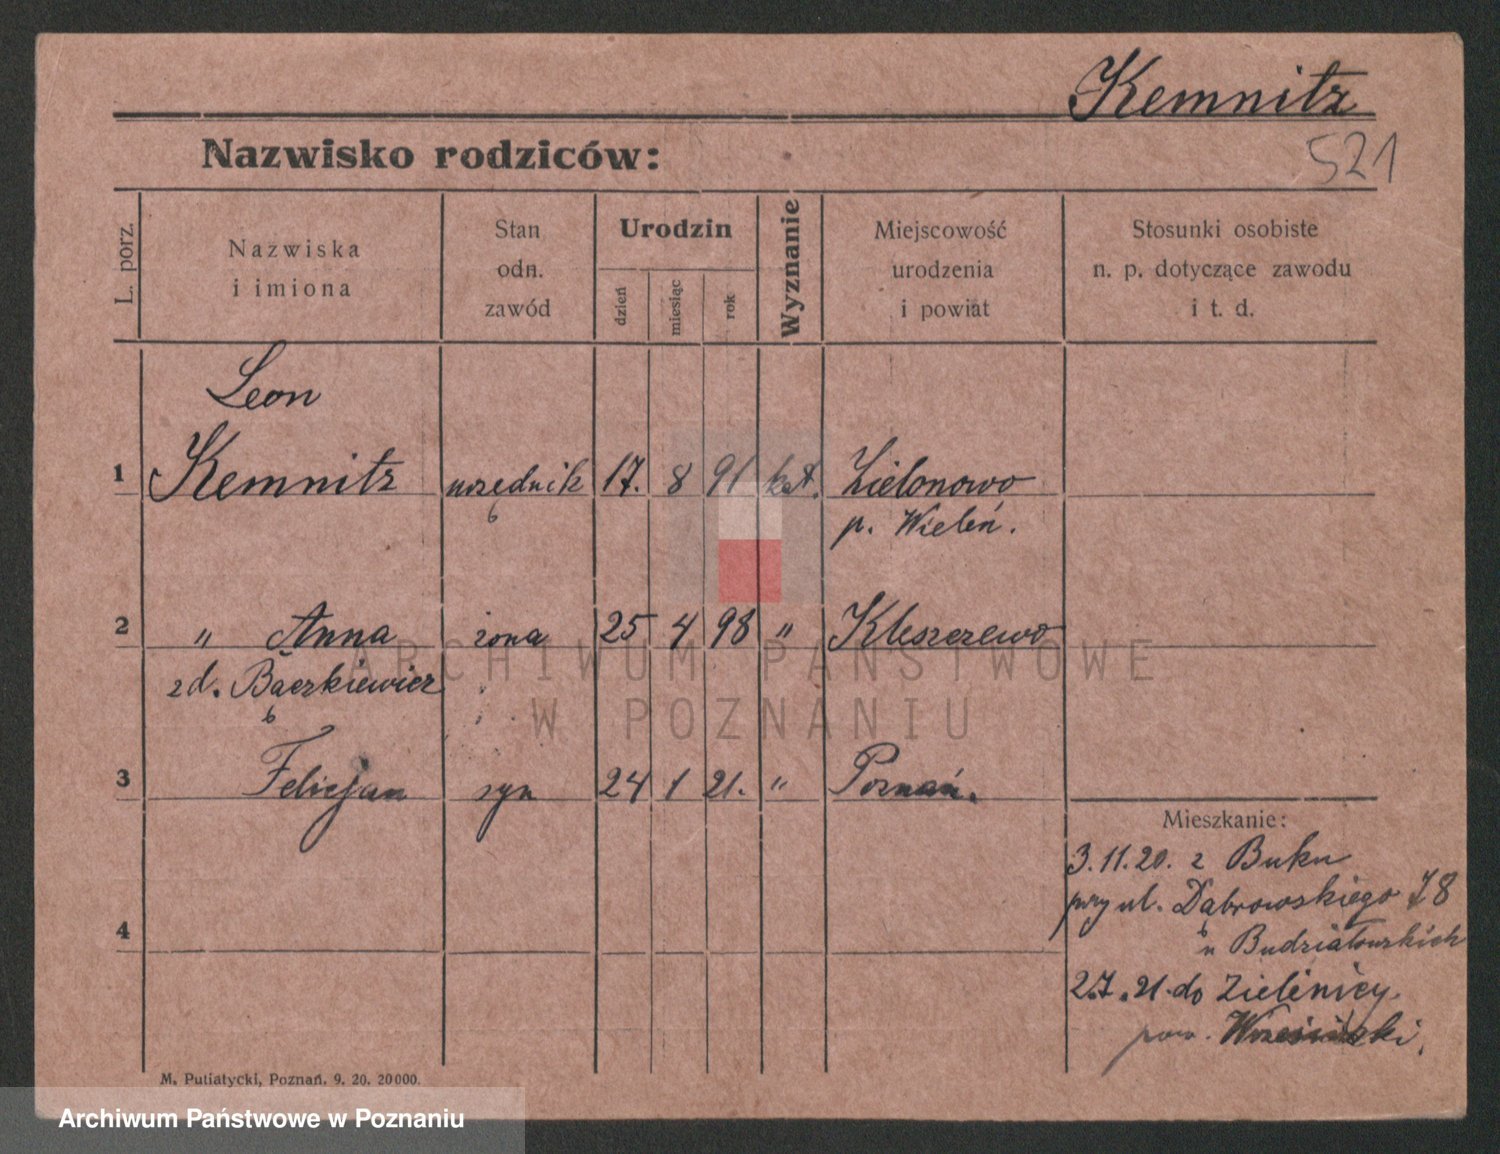 Kemnitz
521
Nazwisko rodziców:
L. porz.
Nazwiska
i imiona
Stan
odn.
zawód
Urodzin
dzień
miesiąc
rok
Wyznanie
Miejscowość
urodzenia
i powiat
Stosunki osobiste
n. p. dotyczące zawodu
i t. d.
Leon
1 Kemnitz urzędnik 17. 8 91 kat. Zielonowo
p. Wieleń.
2 " Anna żona 25 4 98 " Kleszczewo
zd. Bączkiewicz
3 Felicjan syn 24 1 21. " Poznań.
Mieszkanie:
3.11.20. z Buku
przy ul. Dąbrowskiego 78
4
u Budziałowskich
2.7.21. do Zielinicy
pow. Wrzesiński.
M. Putiatycki, Poznań. 9. 20. 20000.
ARCHIWUM PAŃSTWOWE
W POZNANIU
Archiwum Państwowe w Poznaniu